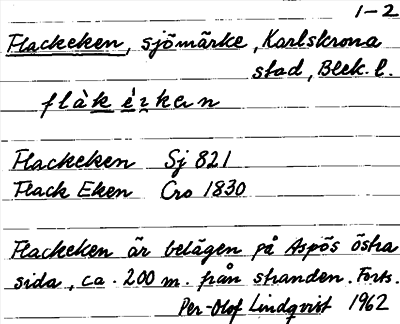 1-2
Flackeken, sjömärke, Karlskrona
stad, Blek. l.
flàk éken
Flackeken Sj 821
Flack Eken Cro 1830
Flackeken är belägen på Aspös östra
sida, ca. 200 m. från stranden. Forts.
Per-Olof Lindqvist 1962